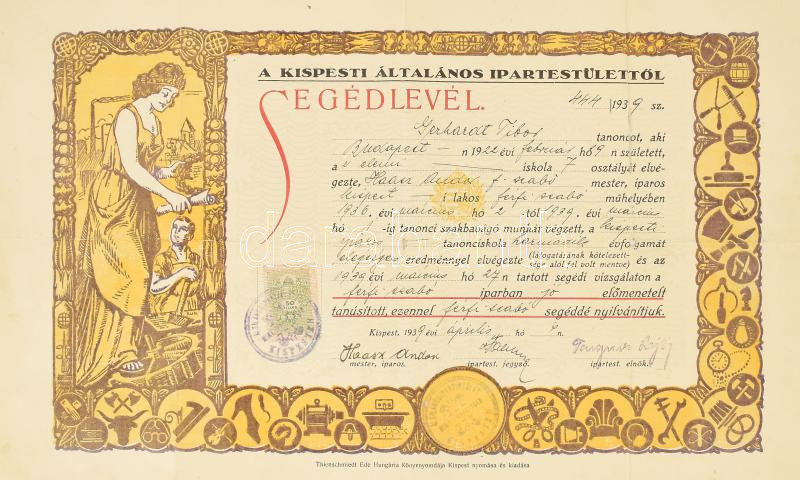 A KISPESTI ÁLTALÁNOS IPARTESTÜLETTŐL
SEGÉDLEVÉL. 444/1939 sz.
Gerhardt Tibor tanoncot, aki
Budapest - n 1922 évi február hó 9 n született,
a elemi iskola 7 osztályát elvé-
gezte, Haasz Andor f. szabó mester, iparos
kispest - i lakos férfi szabó műhelyében
1936. évi március hó 2 tól 1939. évi március
hó 1 -ig tanonci szakbavágó munkát végzett, a kispesti
iparos tanonciskola harmadik évfolyamát
elégséges eredménnyel elvégezte (látogatásának kötelezett-
sége alól fel volt mentve) és az
1939 évi március hó 27 n tartott segédi vizsgálaton a
férfi szabó iparban jó előmenetelt
tanúsított, ezennel férfi-szabó segéddé nyilvánítjuk.
Kispest, 1939 évi április hó n.
Haasz Andor
mester, iparos. ipartest. jegyző. ipartest. elnök.
50
KISPEST
Thienschmiedt Ede Hungária Könyvnyomdája Kispest nyomása és kiadása